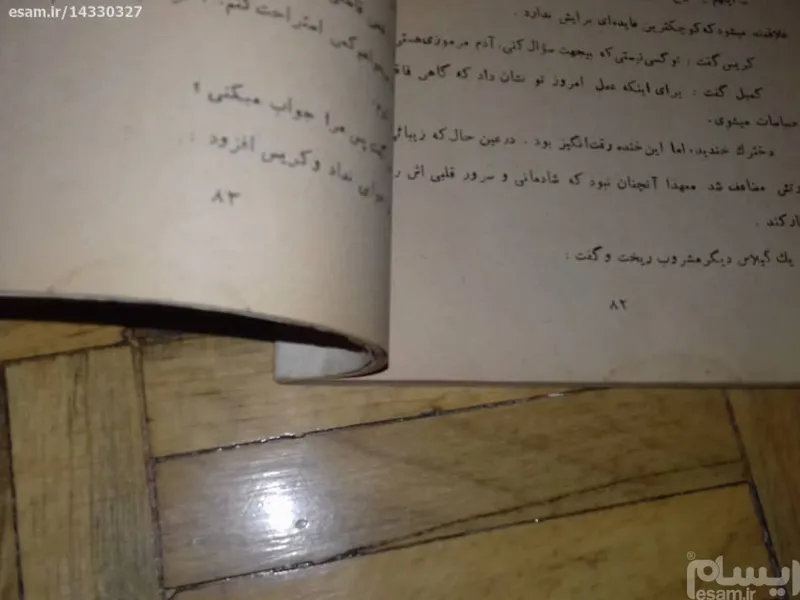 esam.ir/14330327
علاقمند میشود که کوچکترین فایده‌ای برایش ندارد .
کریس گفت : تو کسی نیستی که بیجهت سؤال کنی، آدم مرموزی هستی
کمبل گفت : برای اینکه عمل امروز تو نشان داد که گاهی
حساسات میشوی.
دخترك خندید، اما این خنده رقت‌انگیز بود . در عین حال که
مضاعف شد. معهذا آنچنان نبود که شادمانی و سرور قلبی اش
یك گیلاس دیگر مشروب ریخت و گفت :
۸۲
کمی استراحت کنم.
پس مرا جواب میکنی ؟
نداد و کریس افزود :
۸۳
ایسام
esam.ir